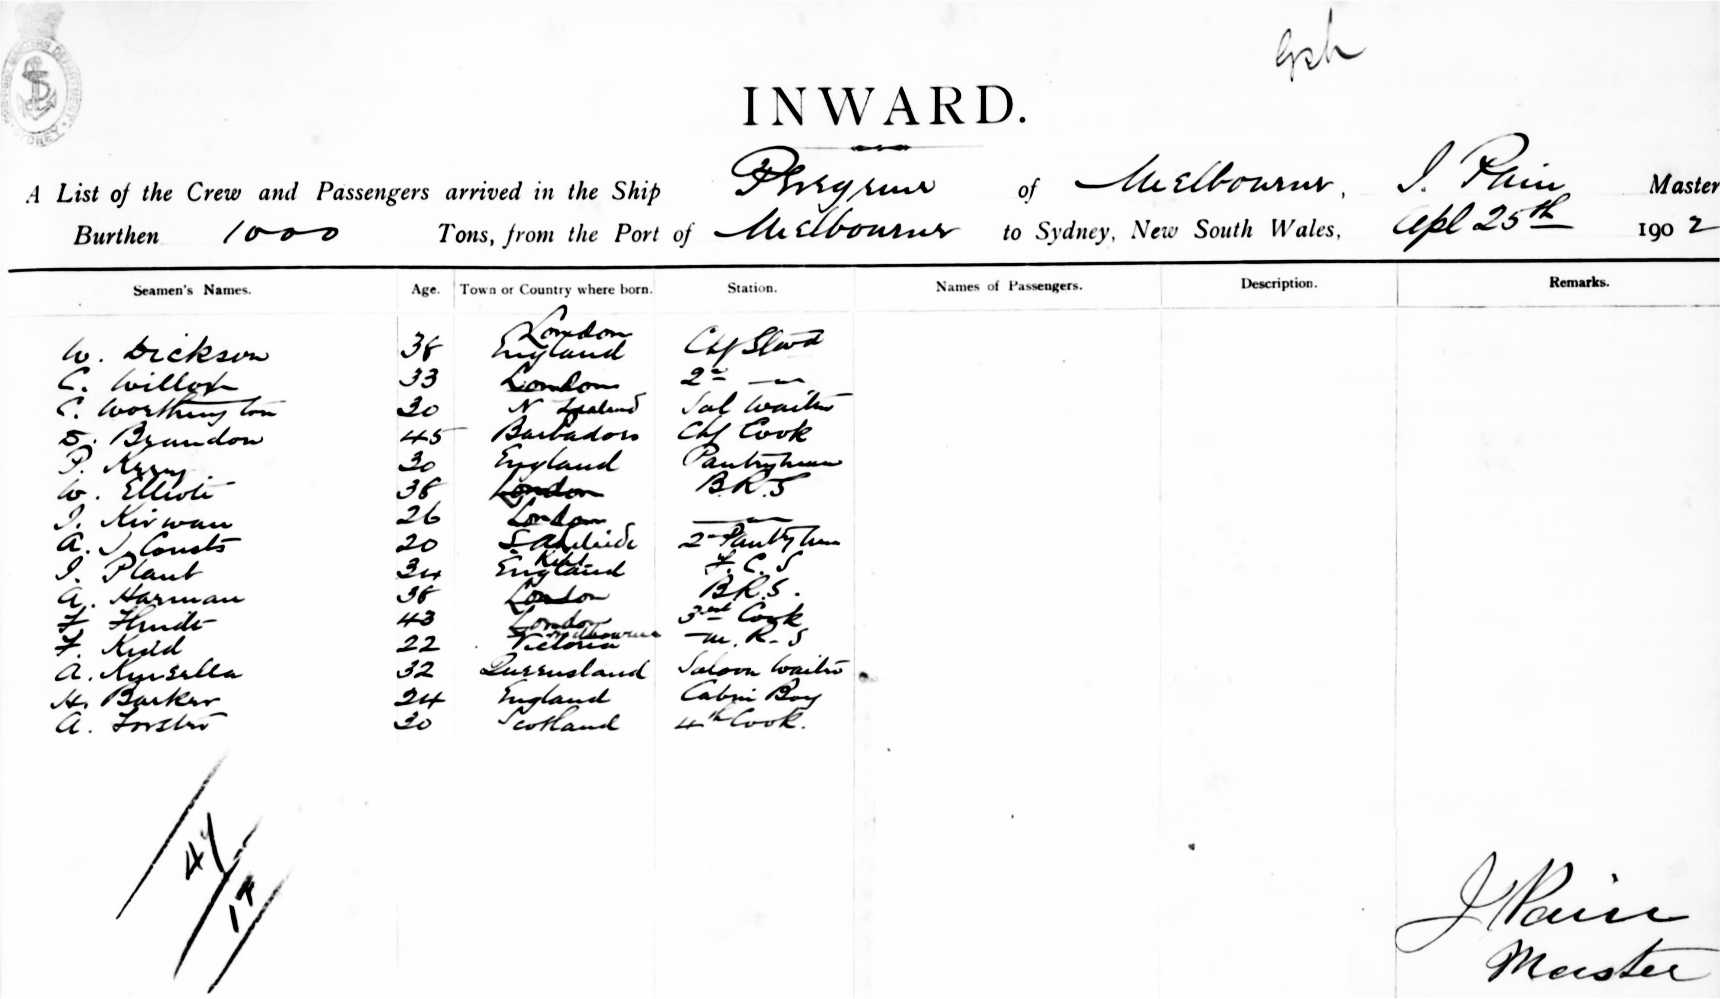 INWARD.
A List of the Crew and Passengers arrived in the Ship Peregrine of Melbourne, J. Pain Master
Burthen 1000 Tons, from the Port of Melbourne to Sydney, New South Wales, Apl 25th 1902
Seamen's Names. Age. Town or Country where born. Station. Names of Passengers. Description. Remarks.
London
W. Dickson 38 England Chf Stwd
C. Willox 33 London 2nd —"—
C. Worthington 30 N Zealand Sal Waiter
D. Brandon 45 Barbados Chf Cook
P. Kerry 30 England Pantryman
W. Elliott 38 London B.R.S
J. Kirwan 26 London —"—
A. J. Cousts 20 S. Adelaide 2nd Pantryman
J. Plant 34 England F.C.S
A. Harman 38 London B.R.S.
F. 43 London 3rd Cook
Melbourne
F. Kidd 22 Victoria M.R.S
A. Kinsella 32 Queensland Saloon Waiter
H. Barker 24 England Cabin Boy
A. Forster 30 Scotland 4th Cook.
47
17
J Pain
Master